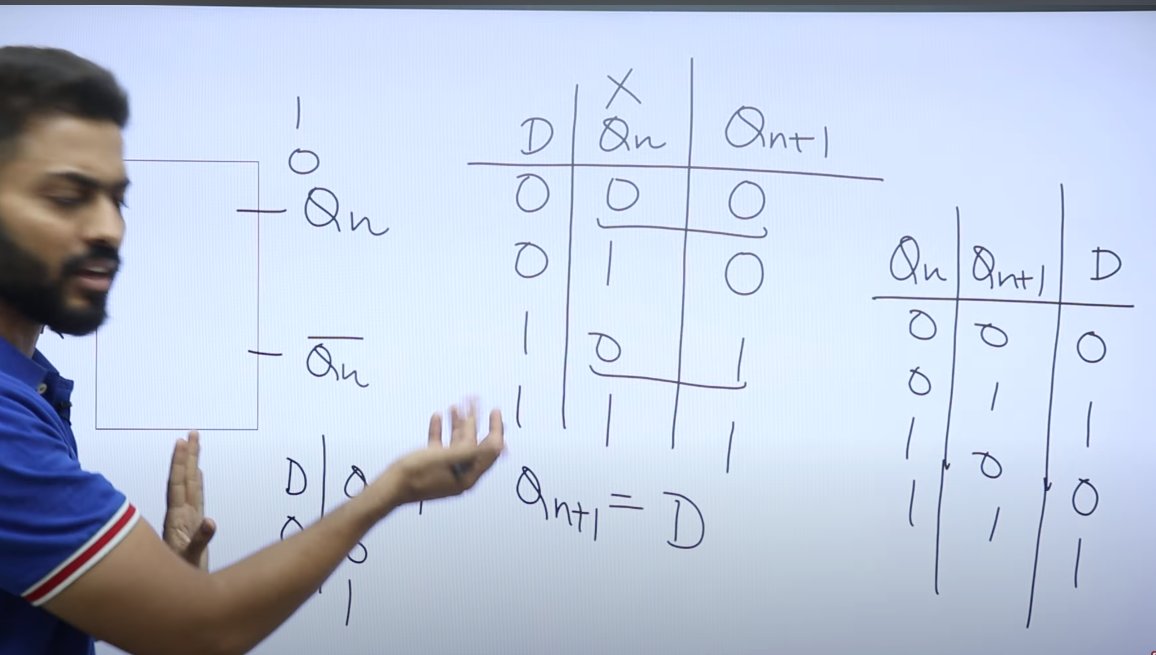 1
0
Qn
Q̅n̅
D | Q
0
1
X
D | Qn | Qn+1
0 | 0 | 0
0 | 1 | 0
1 | 0 | 1
1 | 1 | 1
Qn+1 = D
Qn | Qn+1 | D
0 | 0 | 0
0 | 1 | 1
1 | 0 | 0
1 | 1 | 1